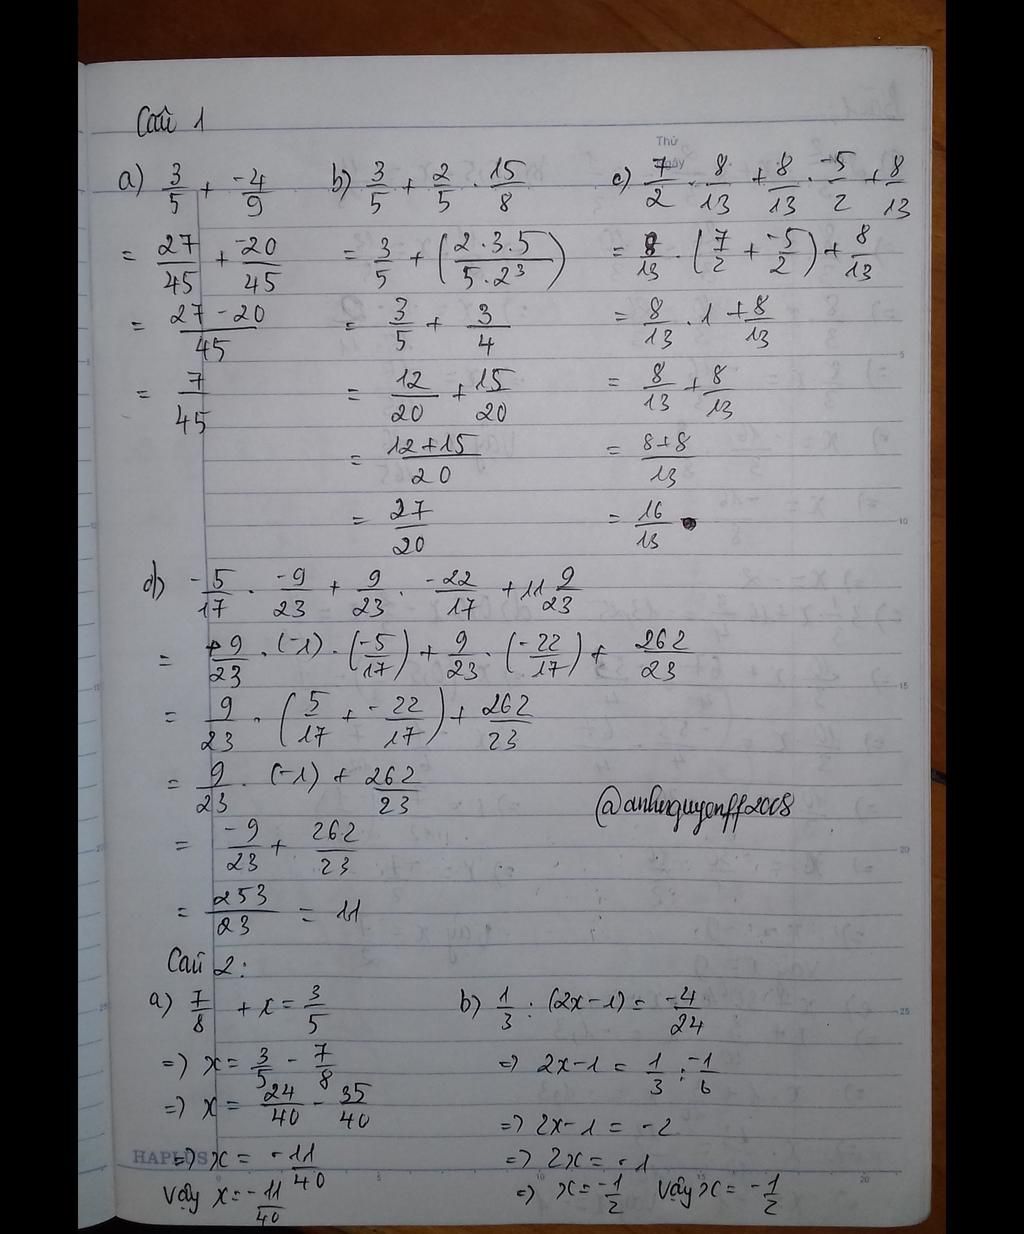 Câu 1
Thứ
Ngày
a) 3/5 + -4/9
= 27/45 + -20/45
= 27-20/45
= 7/45
b) 3/5 + 2/5 . 15/8
= 3/5 + (2.3.5/5.2³)
= 3/5 + 3/4
= 12/20 + 15/20
= 12+15/20
= 27/20
c) 7/2 . 8/13 + 8/13 . -5/2 + 8/13
= 8/13 . (7/2 + -5/2) + 8/13
= 8/13 . 1 + 8/13
= 8/13 + 8/13
= 8+8/13
= 16/13
d) -5/17 . -9/23 + 9/23 . -22/17 + 11 9/23
= +9/23 . (-1) . (-5/17) + 9/23 . (-22/17) + 262/23
= 9/23 . (5/17 + -22/17) + 262/23
= 9/23 . (-1) + 262/23
= -9/23 + 262/23
= 253/23 = 11
@anhnguyenff2008
Câu 2:
a) 7/8 + x = 3/5
=) x = 3/5 - 7/8
=) x = 24/40 - 35/40
=) x = -11/40
Vậy x = -11/40
b) 1/3 : (2x-1) = -4/24
=) 2x-1 = 1/3 : -1/6
=) 2x-1 = -2
=) 2x = -1
=) x = -1/2 Vậy x = -1/2
HAPLUS